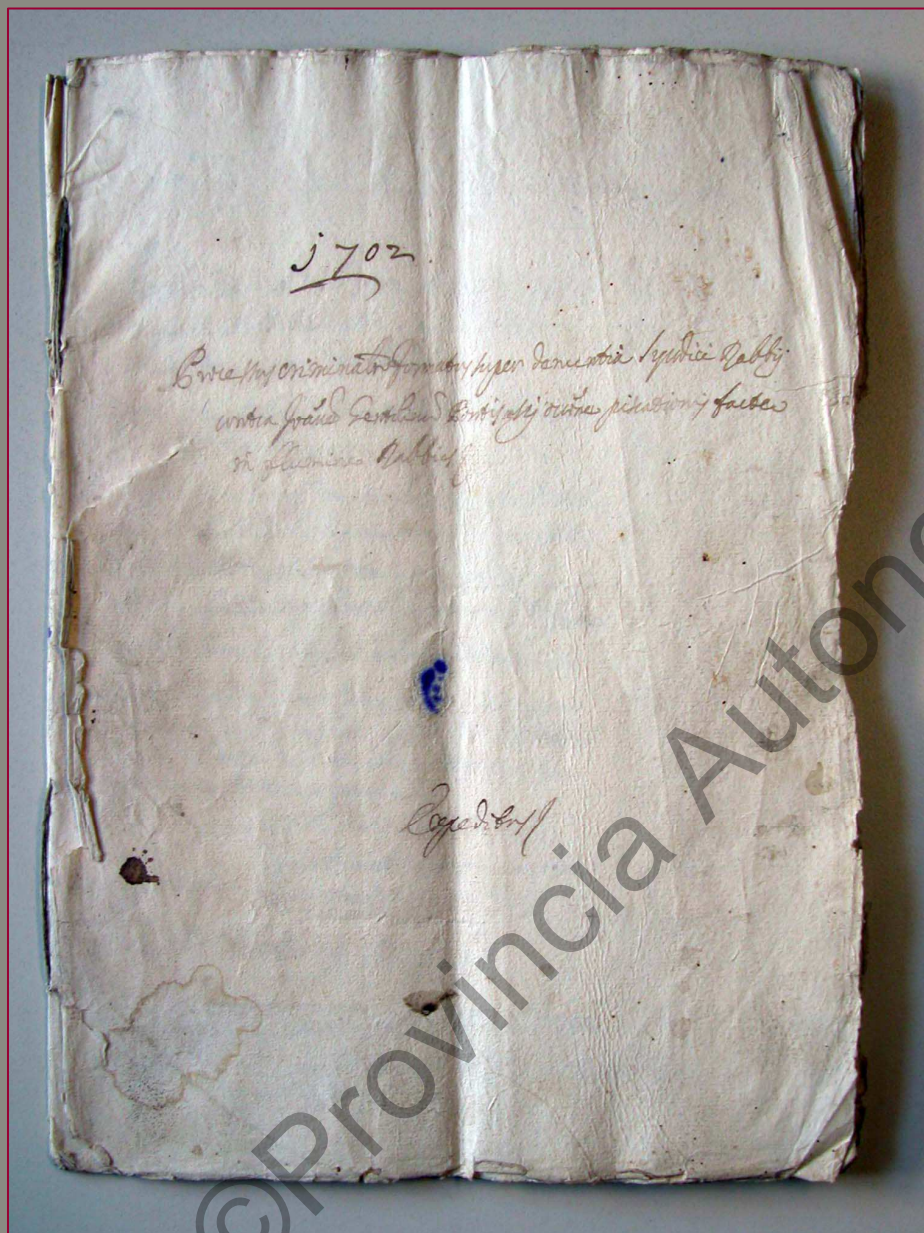 1702
Processus criminalis formatus super denuntia Syndici Rabbij
contra piscationis factae
in flumine Rabbies
Expeditus
©Provincia Autono